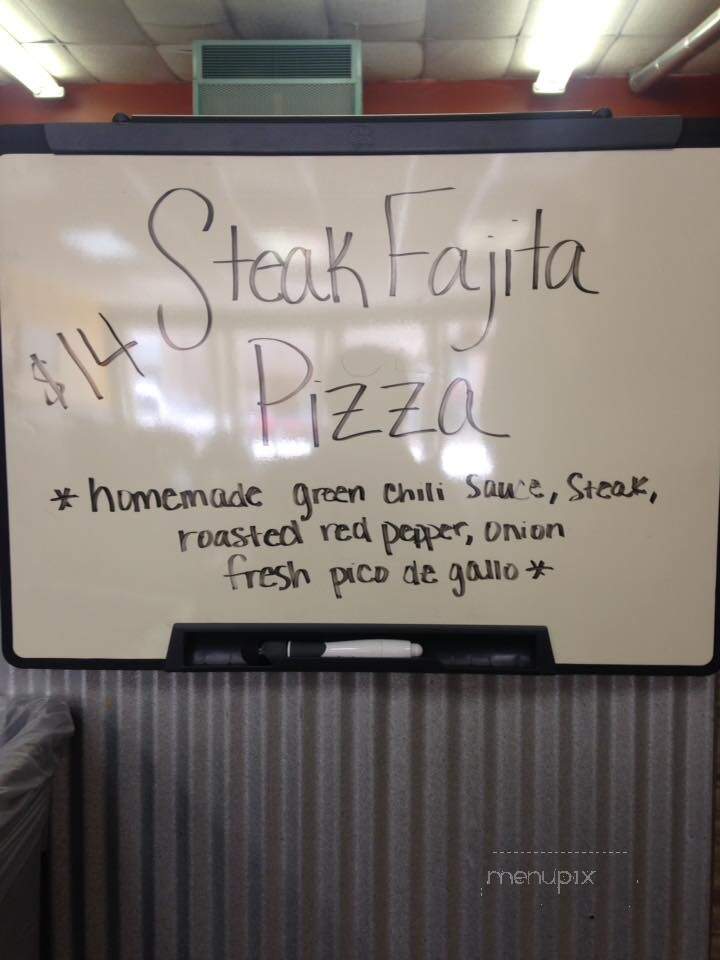 Steak Fajita
$14
Pizza
*homemade green chili sauce, Steak,
roasted red pepper, onion
fresh pico de gallo*
menupix